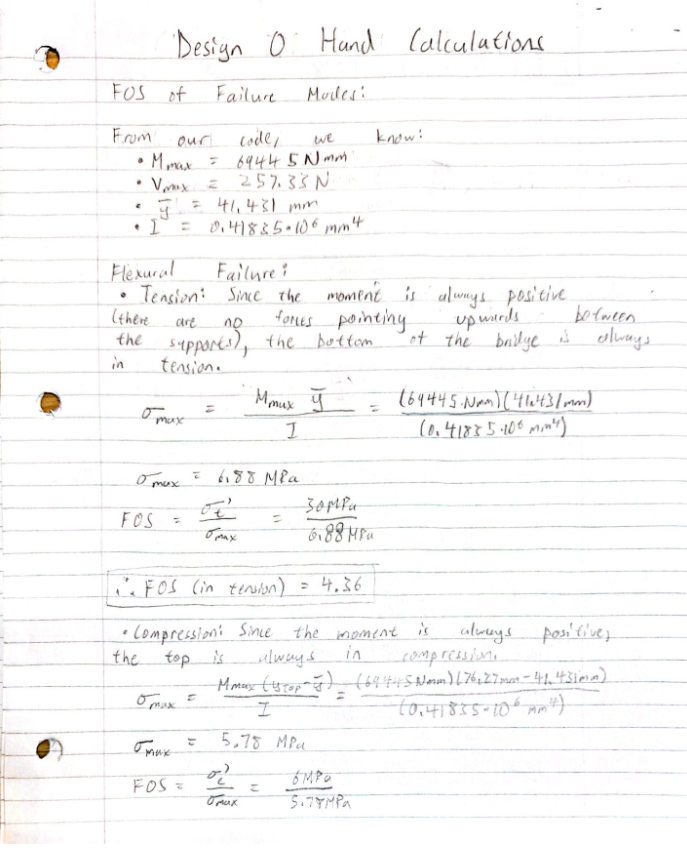 Design 0 Hand Calculations
FOS of Failure Modes:
From our code, we know:
• Mmax = 69445 Nmm
• Vmax = 257.33 N
• ȳ = 41.431 mm
• I = 0.41835•10⁶ mm⁴
Flexural Failure:
• Tension: Since the moment is always positive
(there are no forces pointing upwards between
the supports), the bottom of the bridge is always
in tension.
σmax = Mmax ȳ / I = (69445 Nmm)(41.431mm) / (0.41835•10⁶ mm⁴)
σmax = 6.88 MPa
FOS = σt' / σmax = 30MPa / 6.88 MPa
∴ FOS (in tension) = 4.36
• Compression: Since the moment is always positive,
the top is always in compression.
σmax = Mmax (yTOP-ȳ) / I = (69445 Nmm)(76.27mm - 41.431mm) / (0.41835•10⁶ mm⁴)
σmax = 5.78 MPa
FOS = σc' / σmax = 6MPa / 5.78MPa